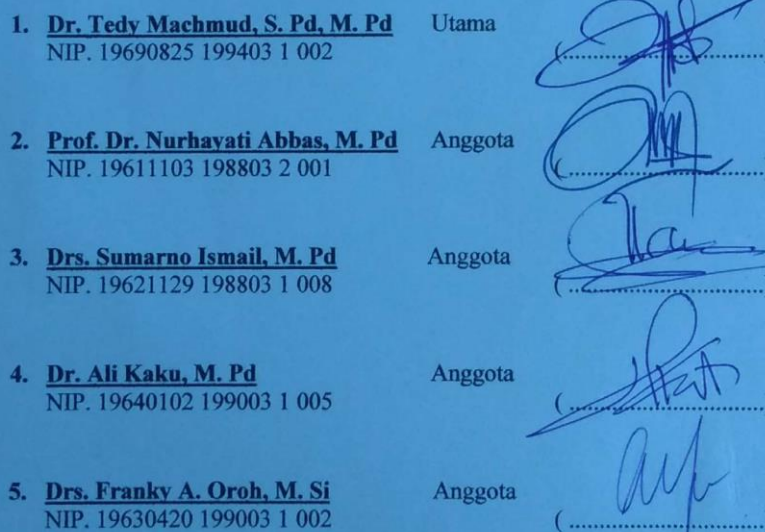 1. Dr. Tedy Machmud, S. Pd, M. Pd Utama
NIP. 19690825 199403 1 002 (....................
2. Prof. Dr. Nurhayati Abbas, M. Pd Anggota
NIP. 19611103 198803 2 001 (....................
3. Drs. Sumarno Ismail, M. Pd Anggota
NIP. 19621129 198803 1 008 (....................
4. Dr. Ali Kaku, M. Pd Anggota
NIP. 19640102 199003 1 005 (....................
5. Drs. Franky A. Oroh, M. Si Anggota
NIP. 19630420 199003 1 002 (....................